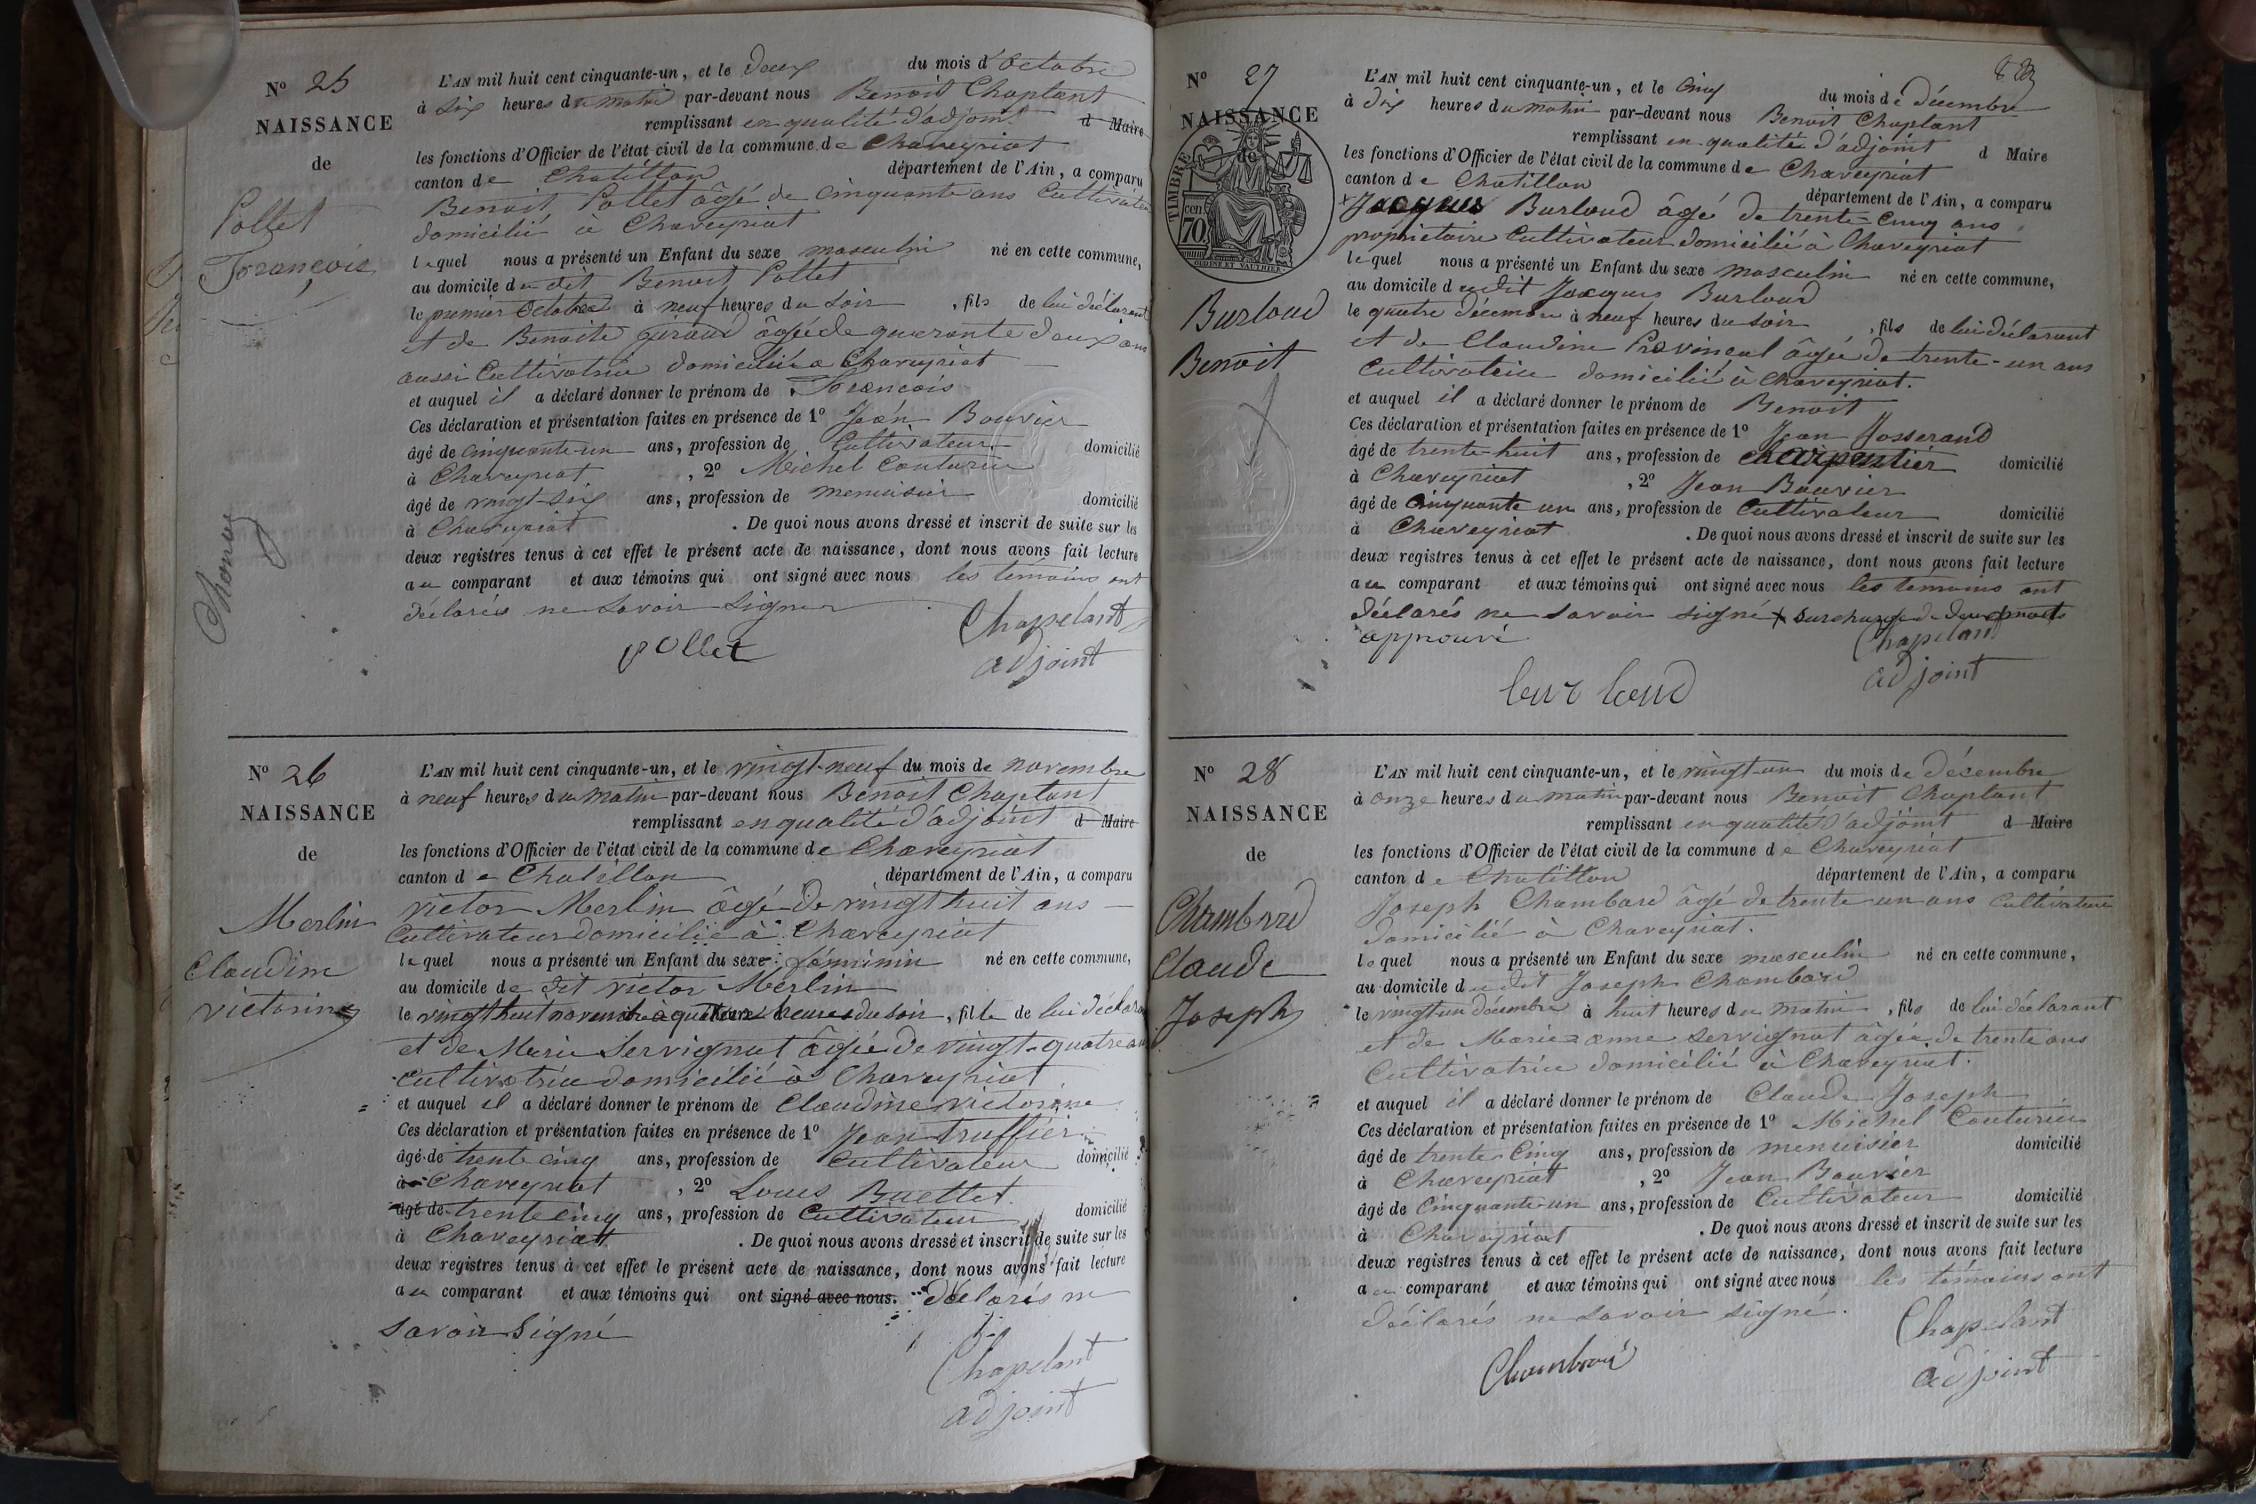 N° 25
NAISSANCE
de
Pollet
François
L'AN mil huit cent cinquante-un, et le deux du mois d'Octobre
à six heures du matin par-devant nous Benoit Chaplant
remplissant en qualité d'adjoint d Maire
les fonctions d'Officier de l'état civil de la commune de Chaveyriat
canton de Chatillon département de l'Ain, a comparu
Benoit Pollet âgé de cinquante ans Cultivateur
domicilié à Chaveyriat
lequel nous a présenté un Enfant du sexe masculin né en cette commune,
au domicile du dit Benoit Pollet
le premier Octobre à neuf heures du soir, fils de lui déclarant
et de Benoite Giraud âgée de quarante deux ans
aussi Cultivatrice domiciliée a Chaveyriat
et auquel il a déclaré donner le prénom de François
Ces déclaration et présentation faites en présence de 1° Jean Bouvier
âgé de cinquante-un ans, profession de Cultivateur domicilié
à Chaveyriat, 2° Michel Couturier
âgé de vingt-six ans, profession de menuisier domicilié
à Chaveyriat. De quoi nous avons dressé et inscrit de suite sur les
deux registres tenus à cet effet le présent acte de naissance, dont nous avons fait lecture
au comparant et aux témoins qui ont signé avec nous les témoins ont
déclarés ne savoir signer
pollet
Chapelant
adjoint
N° 26
NAISSANCE
de
Merlin
Claudine
victorine
L'AN mil huit cent cinquante-un, et le vingt-neuf du mois de novembre
à neuf heures du matin par-devant nous Benoit Chaplant
remplissant en qualité d'adjoint d Maire
les fonctions d'Officier de l'état civil de la commune de Chaveyriat
canton de Chatillon département de l'Ain, a comparu
victor Merlin âgé de vingt huit ans
Cultivateur domicilié à Chaveyriat
lequel nous a présenté un Enfant du sexe féminin né en cette commune,
au domicile de dit victor Merlin
le vingt huit novembre à quatre heures du soir, fille de lui déclarant
et de Marie Servignat âgée de vingt-quatre ans
cultivatrice domiciliée à Chaveyriat
et auquel il a déclaré donner le prénom de Claudine victorine
Ces déclaration et présentation faites en présence de 1° Jean Truffier
âgé de trente cinq ans, profession de Cultivateur domicilié
à Chaveyriat, 2° Louis Buellet
âgé de trente cinq ans, profession de Cultivateur domicilié
à Chaveyriat. De quoi nous avons dressé et inscrit de suite sur les
deux registres tenus à cet effet le présent acte de naissance, dont nous avons fait lecture
au comparant et aux témoins qui ont signé avec nous. déclarés ne
savoir signé
Chapelant
adjoint
N° 27
NAISSANCE
de
TIMBRE
cen 70
Burloud
Benoit
L'AN mil huit cent cinquante-un, et le cinq du mois de décembre
à dix heures du matin par-devant nous Benoit Chaplant
remplissant en qualité d'adjoint d Maire
les fonctions d'Officier de l'état civil de la commune de Chaveyriat
canton de Chatillon département de l'Ain, a comparu
Jacques Burloud âgé de trente-cinq ans
propriétaire Cultivateur domicilié à Chaveyriat
lequel nous a présenté un Enfant du sexe masculin né en cette commune,
au domicile dudit Jacques Burloud
le quatre décembre à neuf heures du soir, fils de lui déclarant
et de Claudine Provincal âgée de trente-un ans
Cultivatrice domicilié à Chaveyriat.
et auquel il a déclaré donner le prénom de Benoit
Ces déclaration et présentation faites en présence de 1° Jean Josserand
âgé de trente-huit ans, profession de charpentier domicilié
à Chaveyriat, 2° Jean Bouvier
âgé de cinquante un ans, profession de Cultivateur domicilié
à Chaveyriat. De quoi nous avons dressé et inscrit de suite sur les
deux registres tenus à cet effet le présent acte de naissance, dont nous avons fait lecture
au comparant et aux témoins qui ont signé avec nous les temoins ont
déclarés ne savoir signé x surcharge de deux mots
approuvé
Chapelant
adjoint
burloud
N° 28
NAISSANCE
de
Chambard
Claude
Joseph
L'AN mil huit cent cinquante-un, et le vingt-un du mois de décembre
à onze heures du matin par-devant nous Benoit Chaplant
remplissant en qualité d'adjoint d Maire
les fonctions d'Officier de l'état civil de la commune de Chaveyriat
canton de Chatillon département de l'Ain, a comparu
Joseph Chambard âgé de trente un ans Cultivateur
domicilié à Chaveyriat.
lequel nous a présenté un Enfant du sexe masculin né en cette commune,
au domicile du dit Joseph Chambard
le vingt un décembre à huit heures du matin, fils de lui déclarant
et de Marie-anne Servignat âgée de trente ans
Cultivatrice domicilié à Chaveyriat.
et auquel il a déclaré donner le prénom de Claude Joseph
Ces déclaration et présentation faites en présence de 1° Michel Couturier
âgé de trente-cinq ans, profession de menuisier domicilié
à Chaveyriat, 2° Jean Bouvier
âgé de Cinquante-un ans, profession de Cultivateur domicilié
à Chaveyriat. De quoi nous avons dressé et inscrit de suite sur les
deux registres tenus à cet effet le présent acte de naissance, dont nous avons fait lecture
au comparant et aux témoins qui ont signé avec nous les témoins ont
déclarés ne savoir signé.
Chambard
Chapelant
adjoint